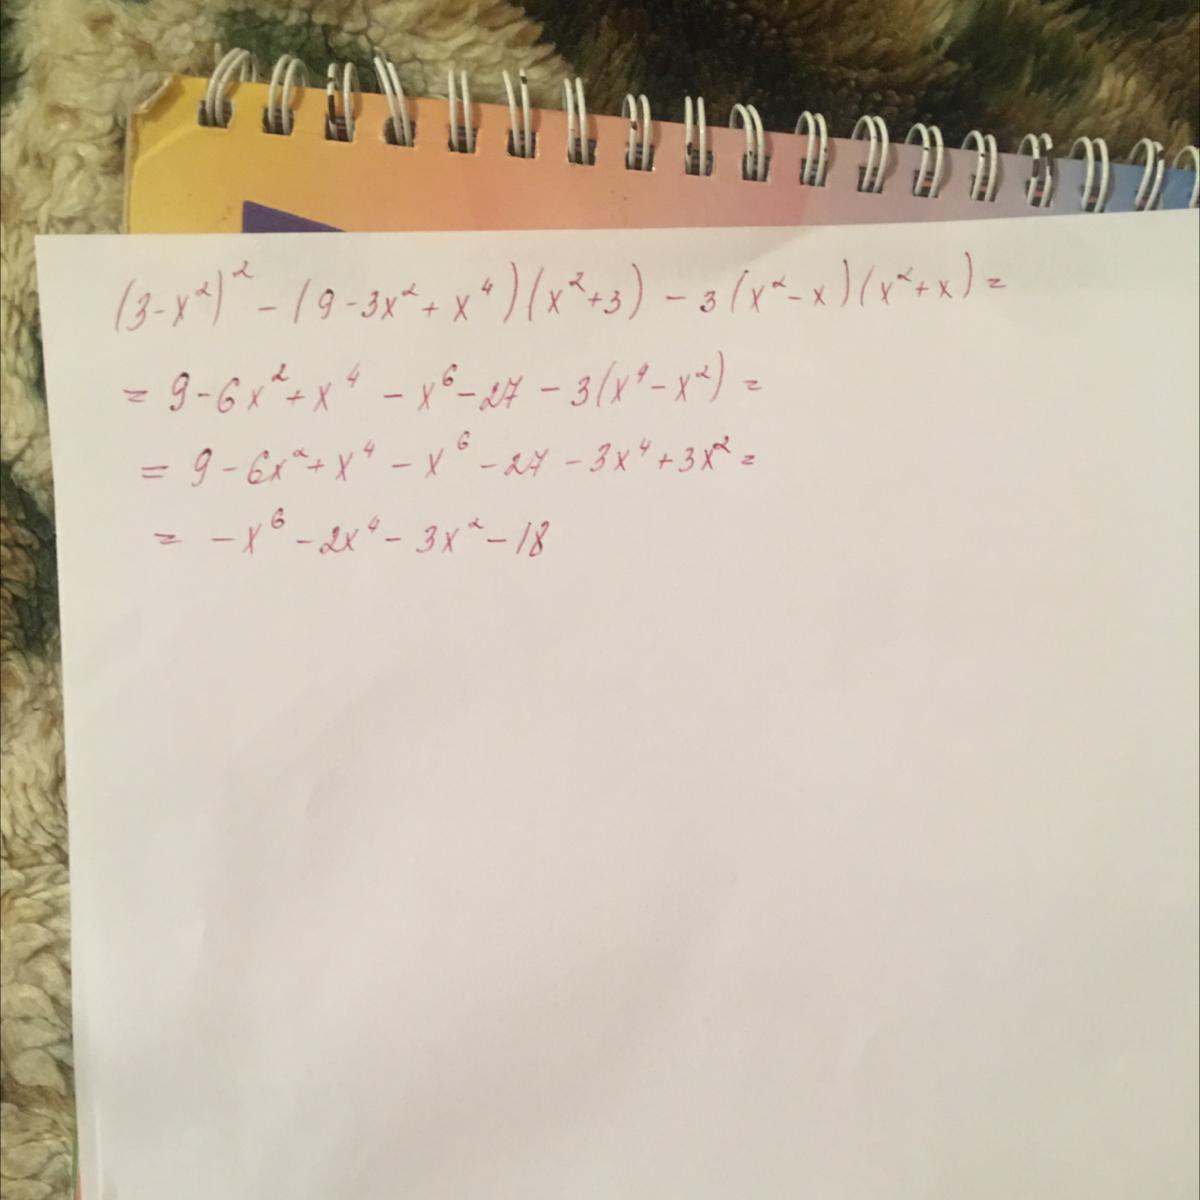 (3-x²)² - (9-3x²+x⁴)(x²+3) - 3(x²-x)(x²+x) =
= 9-6x²+x⁴ - x⁶-27 - 3(x⁴-x²) =
= 9-6x²+x⁴ - x⁶ -27 -3x⁴+3x² =
= -x⁶ -2x⁴ - 3x² -18